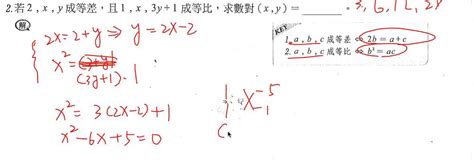 2.若2,x,y成等差,且1,x,3y+1成等比,求數對(x,y)=______。3,6,12,28
解
2x=2+y ⇒ y=2x-2
x²=
(3y+1)·1
x²=3(2x-2)+1
x²-6x+5=0
KEY
1. a,b,c成等差⇔2b=a+c
2. a,b,c成等比⇔b²=ac
1 x -5
1
(